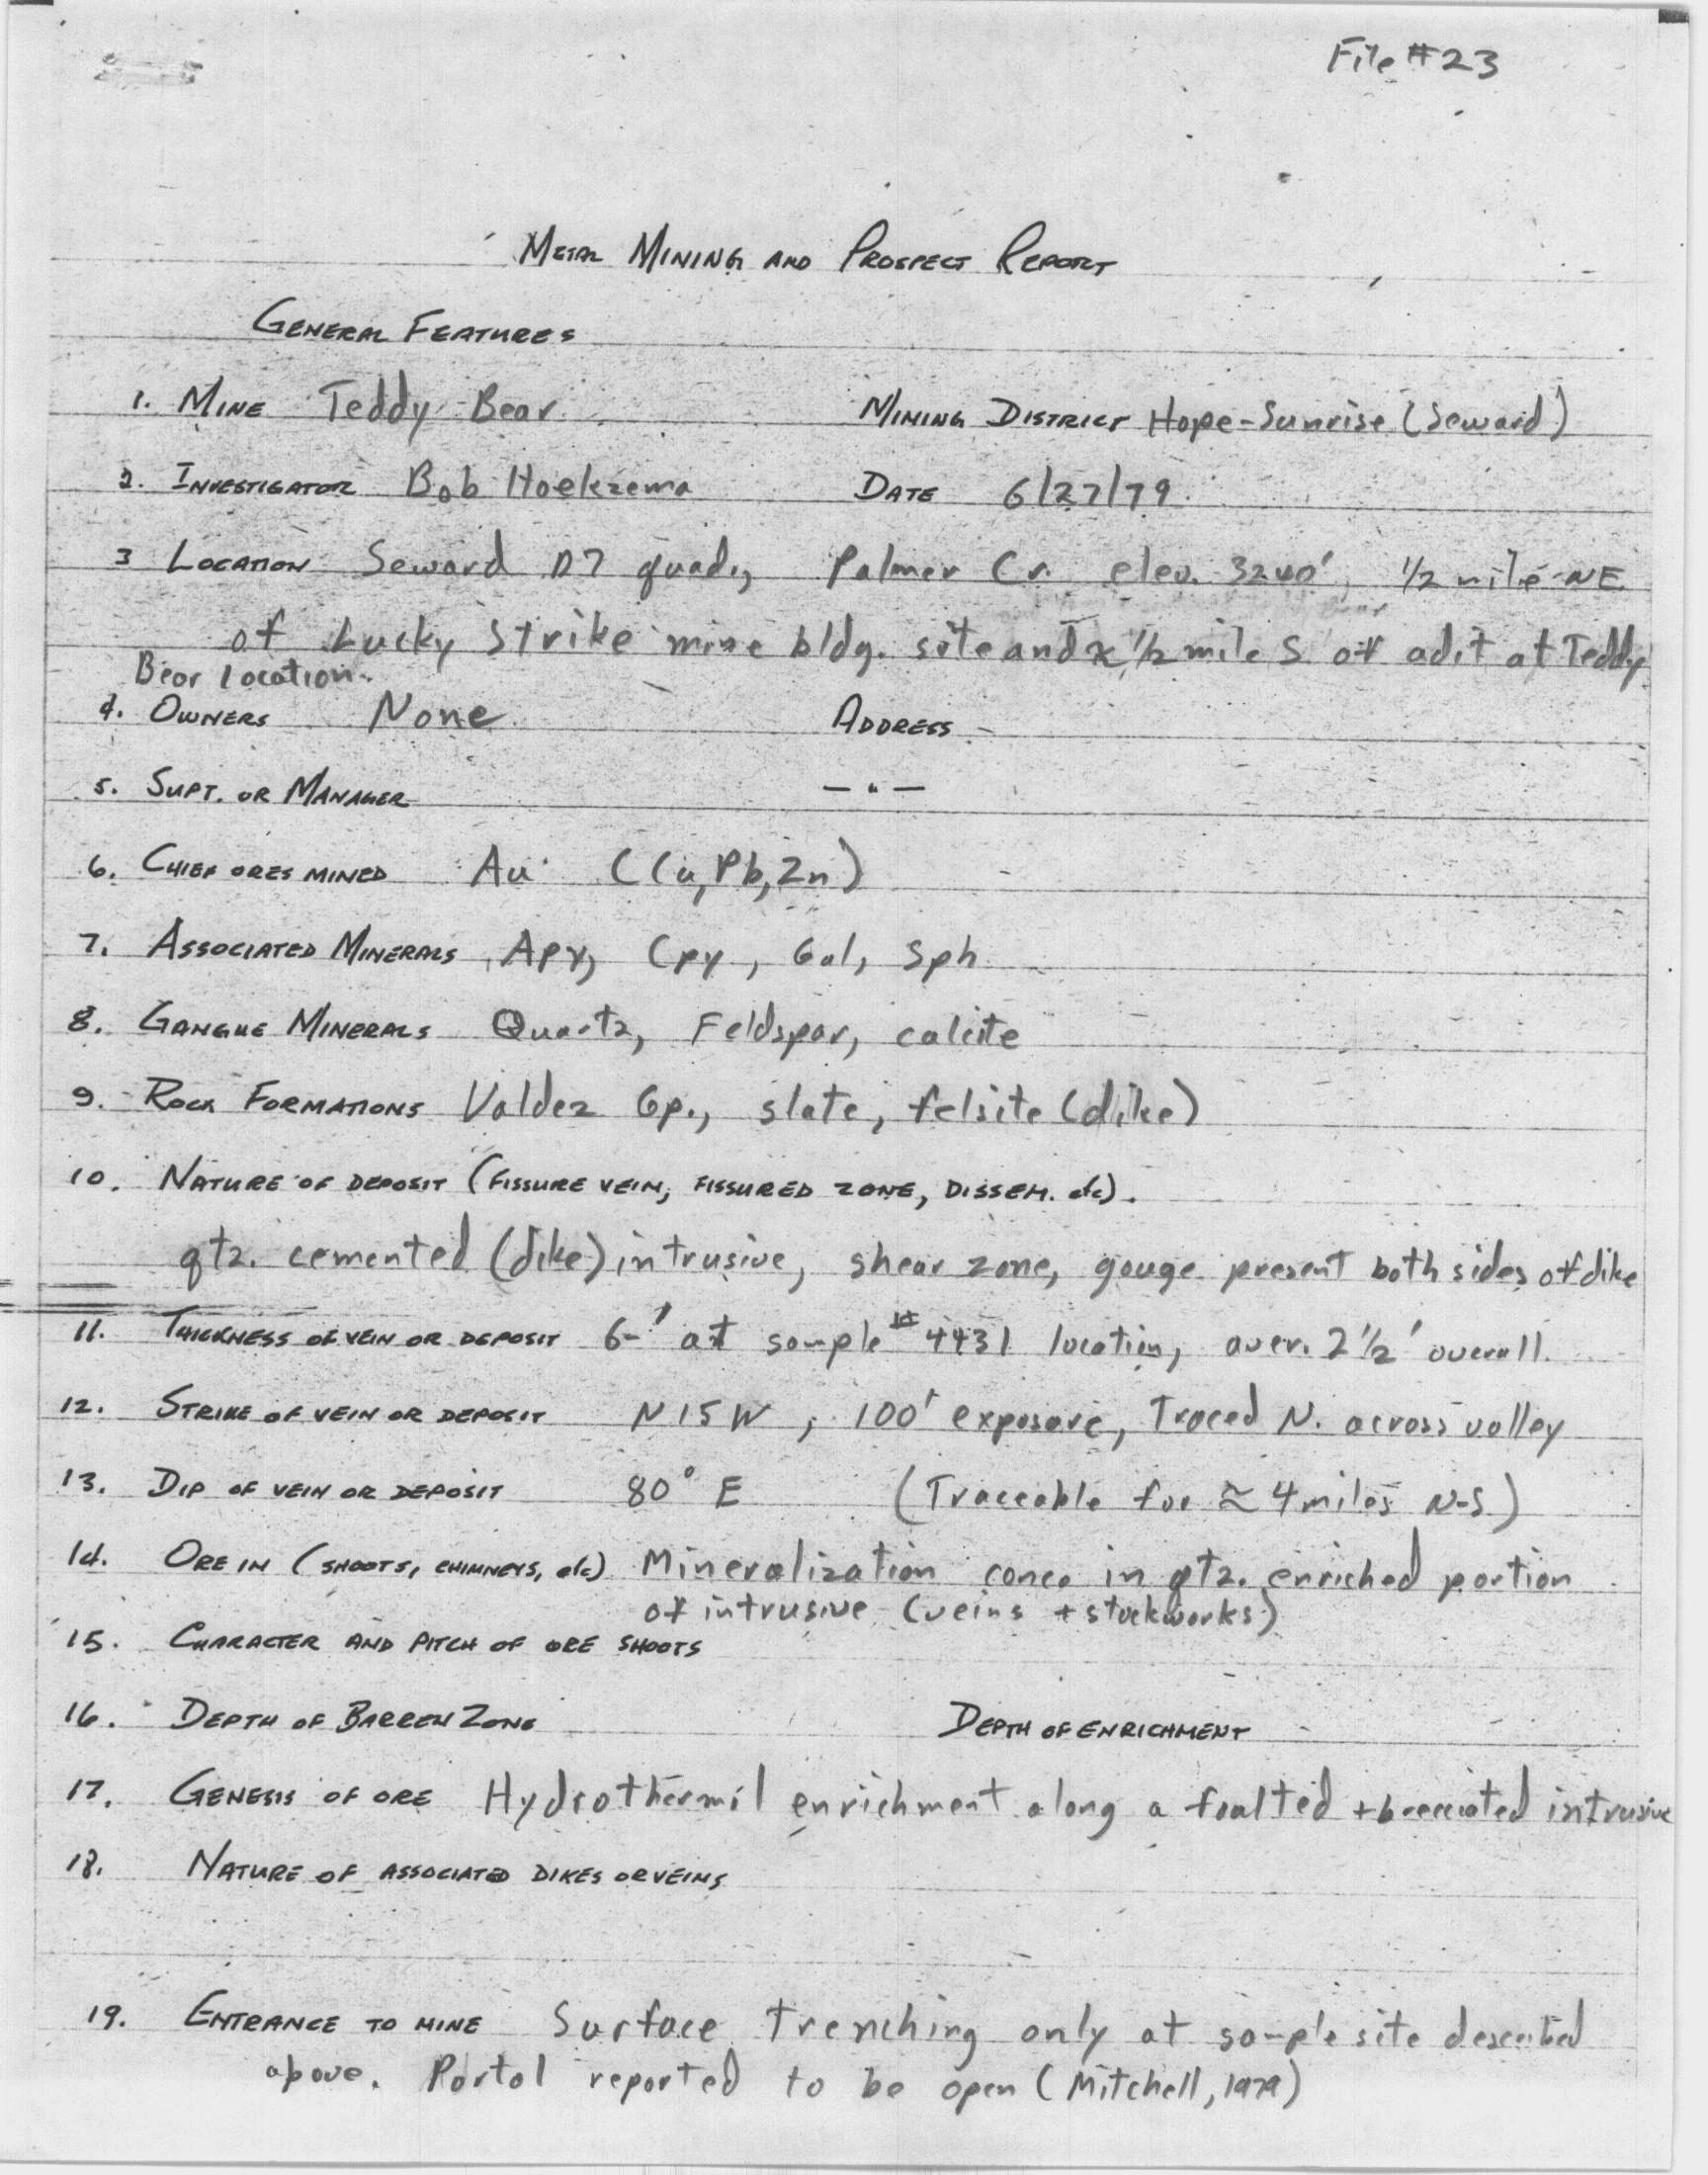 File #23
METAL MINING AND PROSPECT REPORT
GENERAL FEATURES
1. MINE Teddy Bear MINING DISTRICT Hope-Sunrise (Seward)
2. INVESTIGATOR Bob Hoekzema DATE 6/27/79
3 LOCATION Seward D7 quad., Palmer Cr. elev. 3240', 1/2 mile NE
of Lucky Strike mine bldg. site and ≈ 1/2 mile S. of adit at Teddy
Bear location.
4. OWNERS None ADDRESS -
5. SUPT. OR MANAGER — " —
6. CHIEF ORES MINED Au (Cu, Pb, Zn)
7. ASSOCIATED MINERALS Apy, Cpy, Gal, Sph
8. GANGUE MINERALS Quartz, Feldspar, calcite
9. ROCK FORMATIONS Valdez Gp., slate, felsite (dike)
10. NATURE OF DEPOSIT (FISSURE VEIN, FISSURED ZONE, DISSEM. etc).
qtz. cemented (dike) intrusive, shear zone, gouge present both sides of dike
11. THICKNESS OF VEIN OR DEPOSIT 6-' at sample # 4431 location, aver. 2 1/2' overall.
12. STRIKE OF VEIN OR DEPOSIT N 15 W, 100' exposure, Traced N. across valley
13. DIP OF VEIN OR DEPOSIT 80° E (Traceable for ≈ 4 miles N-S)
14. ORE IN (SHOOTS, CHIMNEYS, etc) Mineralization conc. in qtz. enriched portion
of intrusive (veins + stockworks)
15. CHARACTER AND PITCH OF ORE SHOOTS
16. DEPTH OF BARREN ZONE DEPTH OF ENRICHMENT
17. GENESIS OF ORE Hydrothermil enrichment along a foalted + brecciated intrusive
18. NATURE OF ASSOCIATED DIKES OR VEINS
19. ENTRANCE TO MINE Surface Trenching only at sample site described
above. Portal reported to be open (Mitchell, 1979)